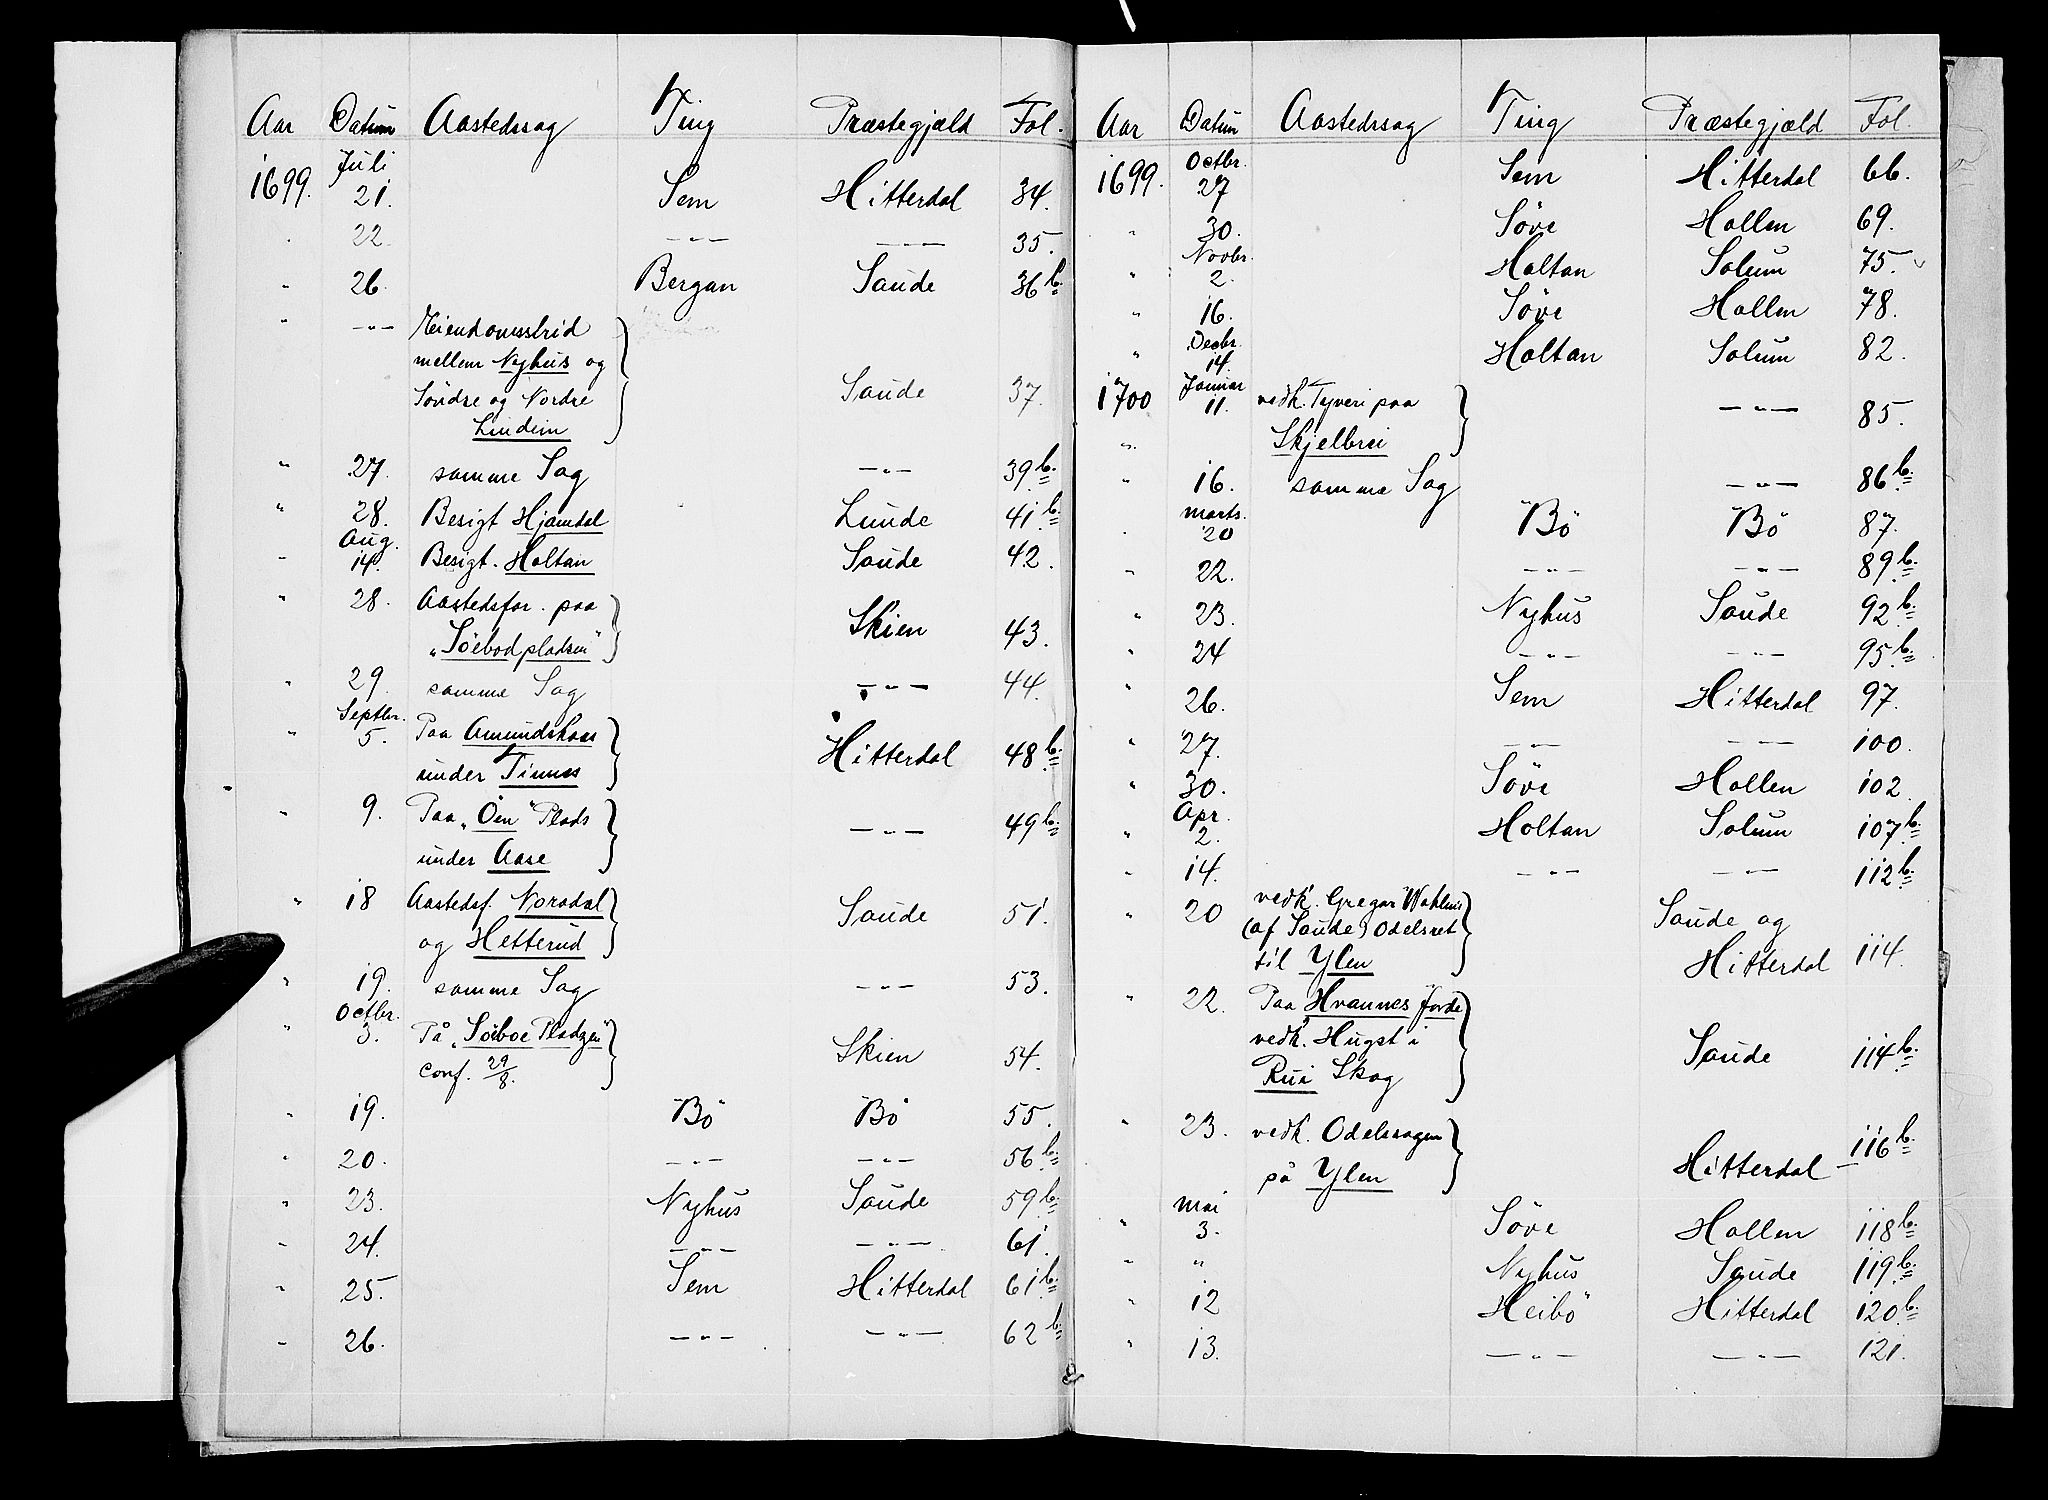 Aar Datum Aastedssag Ting Præstegjæld Fol.
Juli
1699. 21. Sem Hitterdal 34.
" 22. -"- -"- 35.
" 26. Bergan Saude 36 b.
" -"- Eiendomsstrid
mellem Nyhus og
Söndre og Nordre Saude 37.
Lindem
" 27. samme Sag -"- 39 b.
" 28. Besigt Hjamdal Lunde 41 b.
Aug.
" 14. Besigt. Holtan Saude 42.
" 28. Aastedsfor. paa
„Söebodpladsen" Skien 43.
" 29. samme Sag -"- 44.
Septbr.
" 5. Paa Amundskaas
under Tinnes Hitterdal 48 b.
" 9. Paa „Öen" Plads
under Aase -"- 49 b.
" 18 Aastedsf. Noradal
og Hetterud Saude 51.
" 19. samme Sag -"- 53.
Octbr.
" 3. På „Söeboe Pladzen"
conf. 29/8. Skien 54.
" 19. Bö Bö 55.
" 20. -"- -"- 56 b.
" 23. Nyhus Saude 59 b.
" 24. -"- -"- 61.
" 25. Sem Hitterdal 61 b.
" 26. -"- -"- 62 b.
Aar Datum Aastedssag Ting Præstegjæld Fol.
Octbr.
1699. 27 Sem Hitterdal 66.
" 30. Söve Hollen 69.
Novbr.
" 2. Holtan Solum 75.
" 16. Söve Hollen 78.
Decbr.
" 14. Holtan Solum 82.
Januar
1700 11. vedk. Tyveri paa -"- 85.
" Skjelbrei
" 16. samme Sag -"- 86 b.
Marts.
" 20 Bö Bö 87.
" 22. -"- -"- 89 b.
" 23. Nyhus Saude 92 b.
" 24 -"- -"- 95 b.
" 26. Sem Hitterdal 97.
" 27. -"- -"- 100.
" 30. Söve Hollen 102.
Apr.
" 2. Holtan Solum 107 b.
" 14. -"- -"- 112 b.
" 20 vedk. Gregar
(af Saude) Odelsret Saude og
til Ylen Hitterdal 114.
" 22. Paa Hvannes Jorde
vedk. Hugst i Saude 114 b.
Rui Skog
" 23. vedk. Odelssagen
på Ylen Hitterdal 116 b.
Mai
" 3. Söve Hollen 118 b.
" " Nyhus Saude 119 b.
" 12 Heibö Hitterdal 120 b.
" 13. -"- -"- 121.